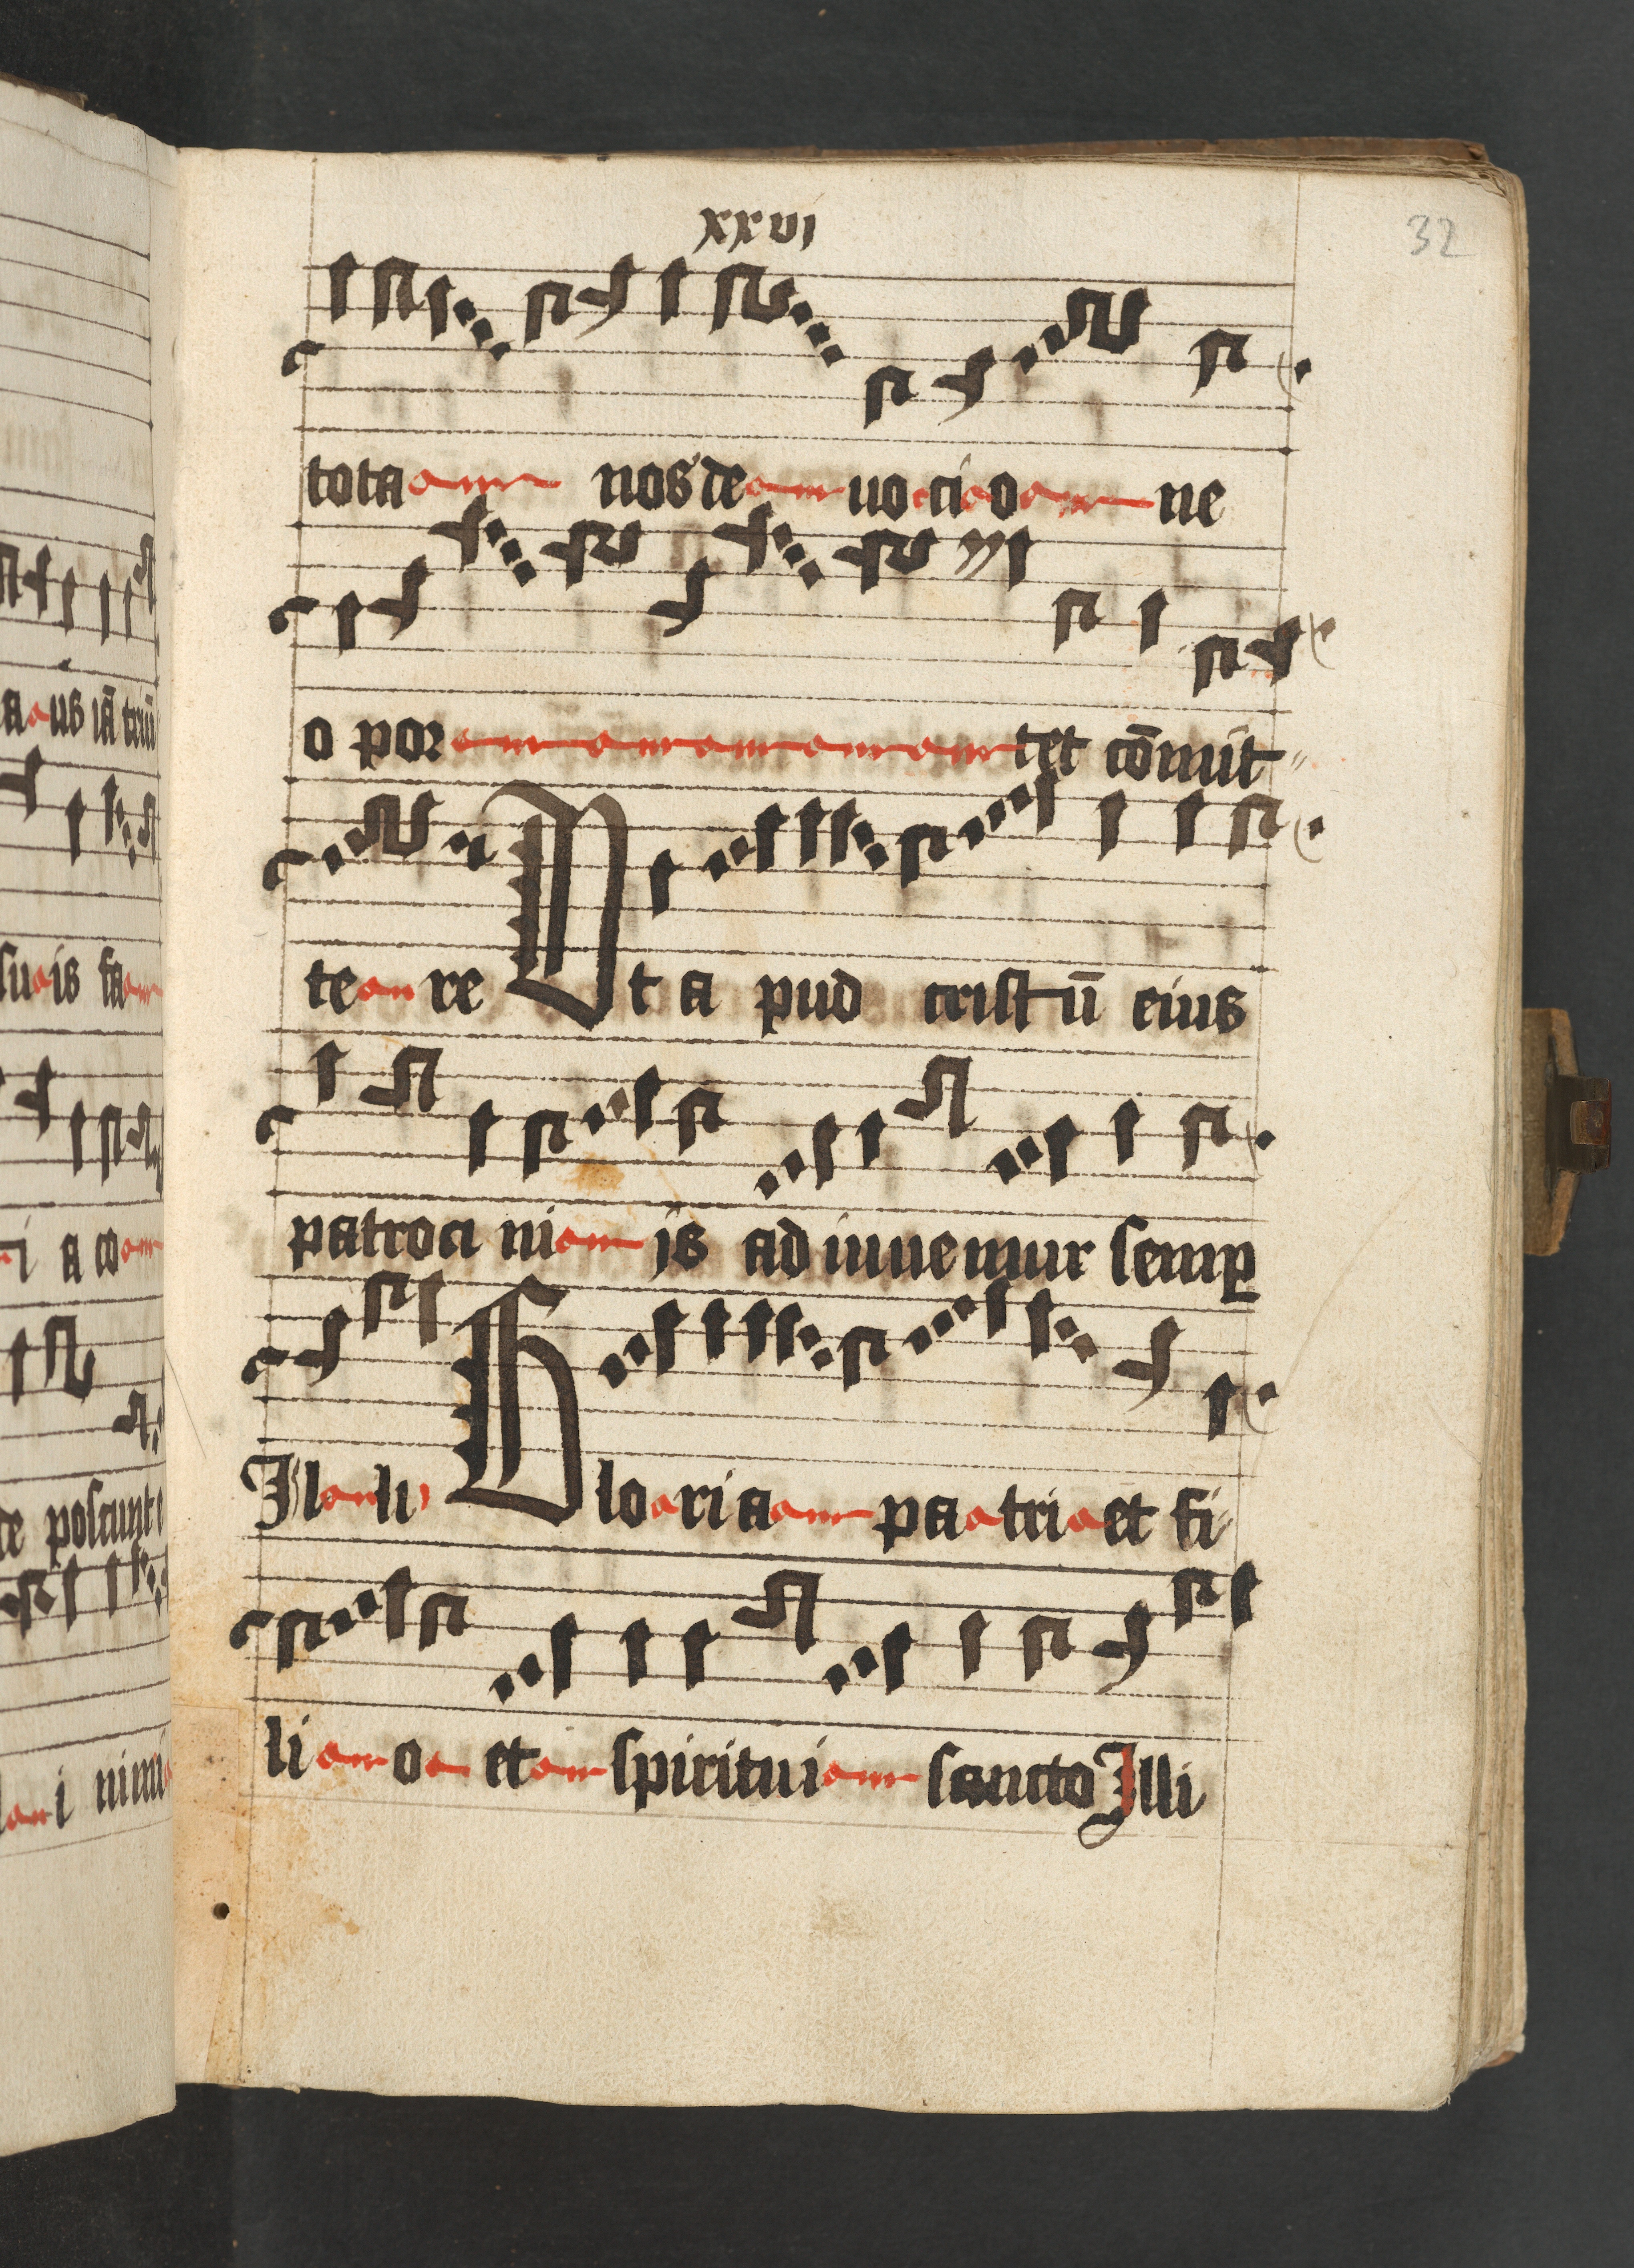 xxvi
32
tota nos de uo ci o ne
o por tet cōmit
te re Ut a pud cristū eius
patroci ni js ad iuuemur semp
Il li Glo ri a pa tri et fi
li o et spiritui sancto Illi
a us iā triū
su is fa
i a co
de poscunt
i nimi